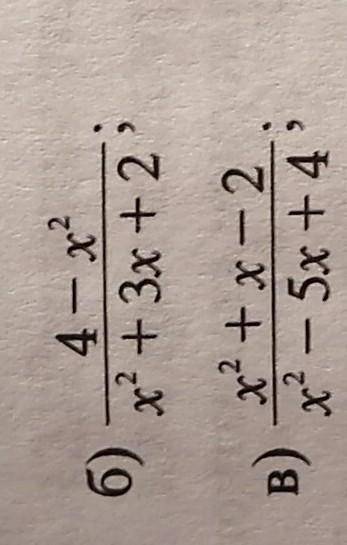 б) \frac{4 - x^2}{x^2 + 3x + 2};
в) \frac{x^2 + x - 2}{x^2 - 5x + 4};